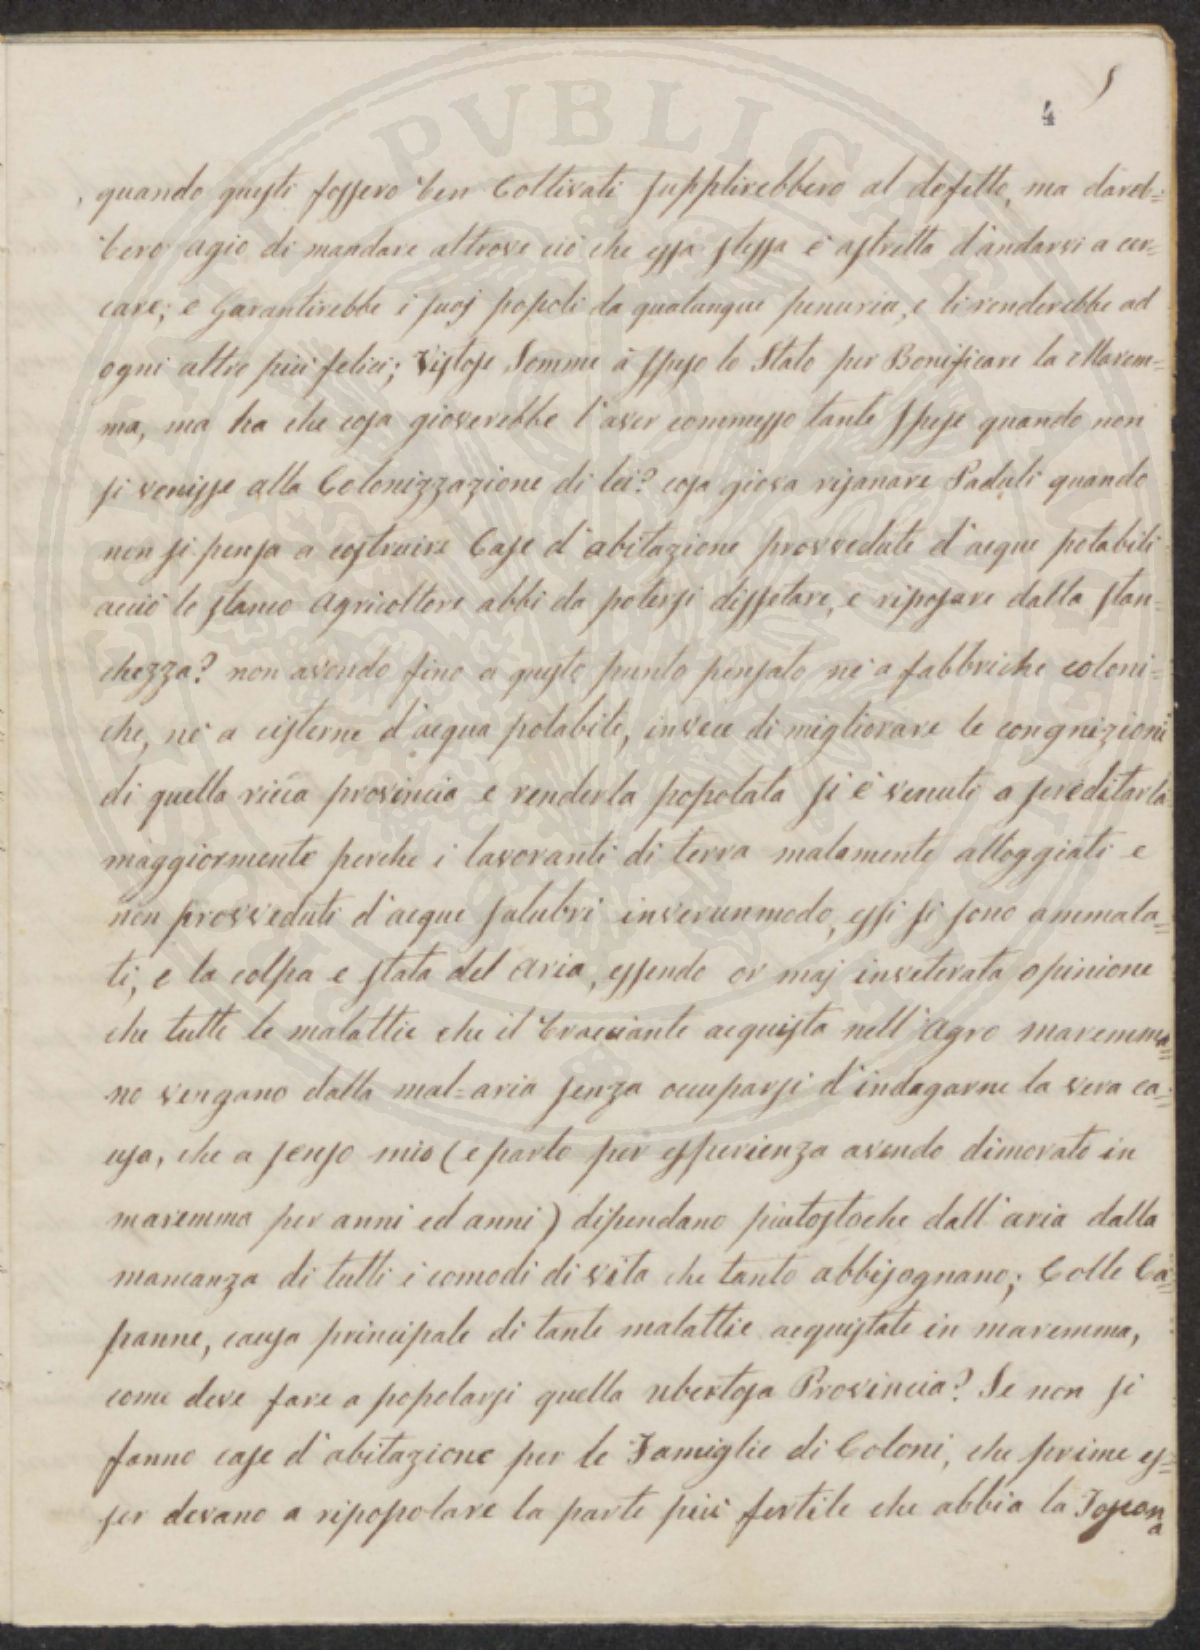 5
4
quando questi fossero ben Coltivati supplirebbero al defetto, ma dareb=
bero agio di mandare altrove ciò che essa stessa è astretta d'andarsi a cer=
care; e Garantirebbe i suoj popoli da qualunque penuria, e li renderebbe ad
ogni altro più felici; Vistose Somme à speso lo Stato per Bonificare la Marem=
ma, ma ha che cosa gioverebbe l'aver commesso tante spese quando non
si venisse alla Colonizzazione di lei? cosa giova risanare Paduli quando
non si pensa a costruire Case d'abitazione provvedute d'acque potabili
acciò lo stanco Agricoltore abbi da potersi dissetare, e riposare dalla stan=
chezza? non avendo fino a questo punto pensato nè a fabbriche coloni=
che, nè a cisterne d'acqua potabile, invece di migliorare le congnizioni
di quella ricca provincia e renderla popolata si è venuti a screditarla
maggiormente perche i lavoranti di terra malamente alloggiati e
non provveduti d'acque salubri inverunmodo, essi si sono ammala=
ti, e la colpa e stata del aria, essendo or maj inveterata opinione
che tutte le malattie che il bracciante acquista nell'agro maremma=
no vengano dalla mal=aria senza occuparsi d'indagarne la vera ca=
usa, che a senso mio (e parlo per esperienza avendo dimorato in
maremma per anni ed anni) dipendano piutostoche dall'aria dalla
mancanza di tutti i comodi di vita che tanto abbisognano; Colle Ca=
panne, causa principale di tante malattie acquistate in maremma,
come deve fare a popolarsi quella ubertosa Provincia? Se non si
fanno case d'abitazione per le Famiglie di Coloni, che prime es=
ser devano a ripopolare la parte più fertile che abbia la Toscana